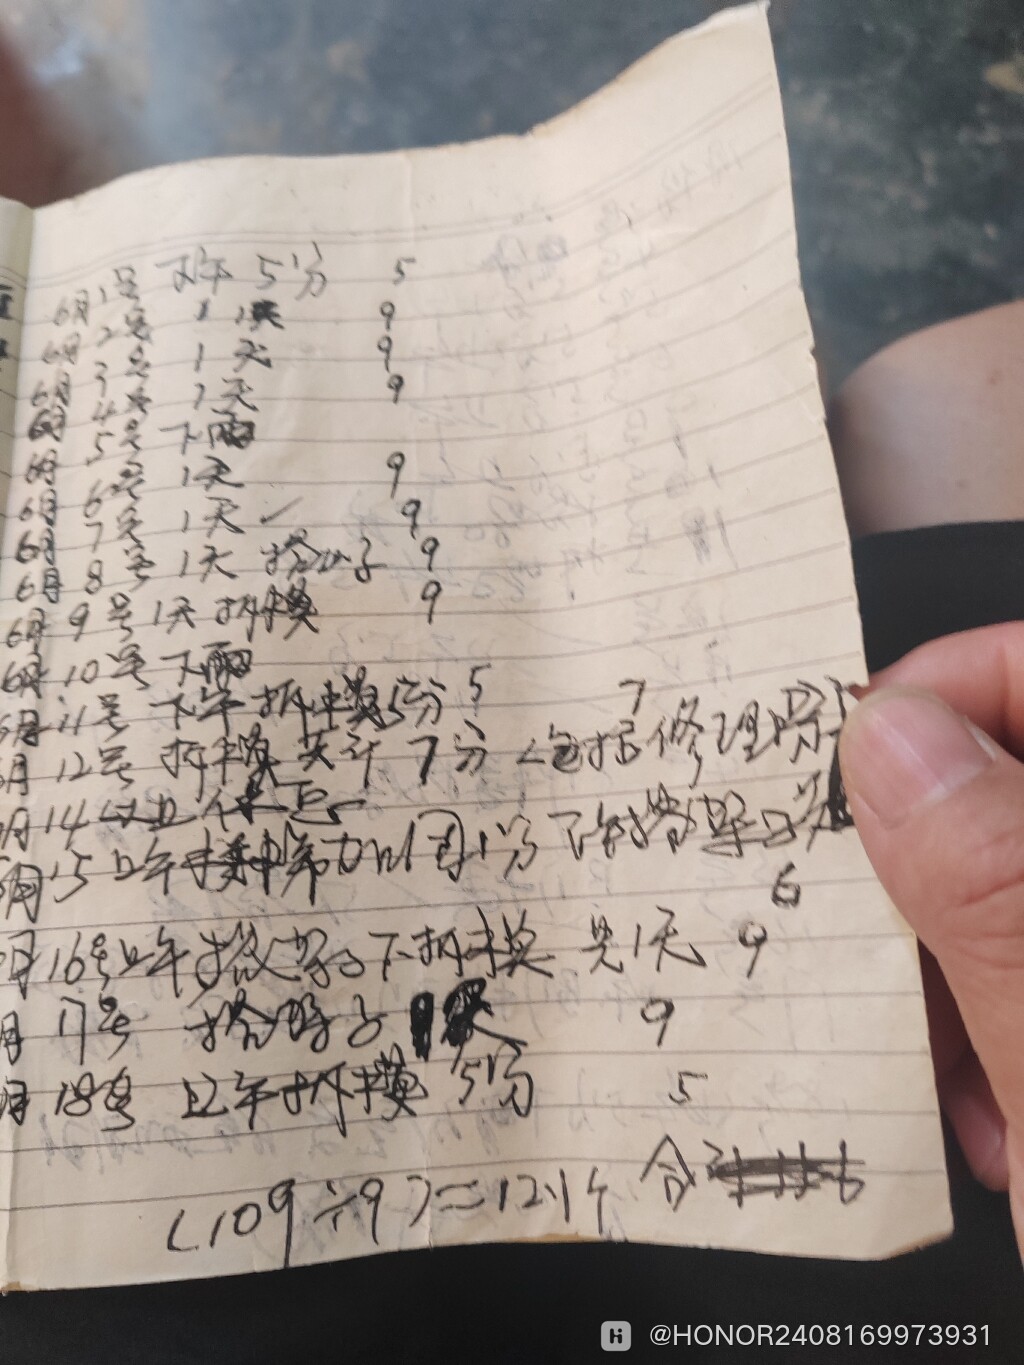 6月1号 下午 5分 5
6月2号 1天 9
6月3号 1天 9
6月4号 1天 9
6月5号 下雨
6月6号 1天 9
6月7号 1天 ✓ 9
6月8号 1天 搭 子 9
6月9号 1天 拆模 9
6月10号 下雨
6月11号 下午拆模5分 5
月12号 拆模 7分 包括修理 7
月14
6月15 上午 加固1分 下午搭架
6
月16号上午搭架子下拆模 1天 9
月17号 搭架子 9
月18号 上午拆模 5分 5
(109÷9)=12.1个 合
@HONOR2408169973931